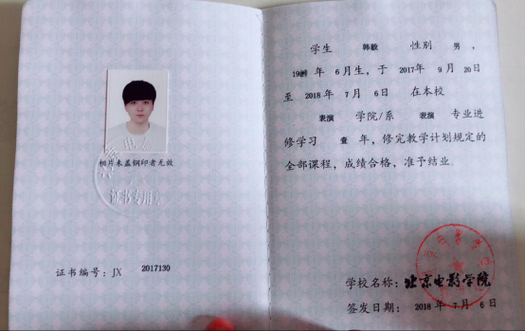 相片未盖钢印者无效
证书专用
证书编号：JX 2017130
学生 韩毅 性别 男，
年 6月生，于 2017年 9月 20日
至 2018年 7月 6日 在本校
表演 学院/系 表演 专业进
修学习 壹 年，修完教学计划规定的
全部课程，成绩合格，准予结业。
学校名称：北京电影学院
签发日期：2018年 7月 6日